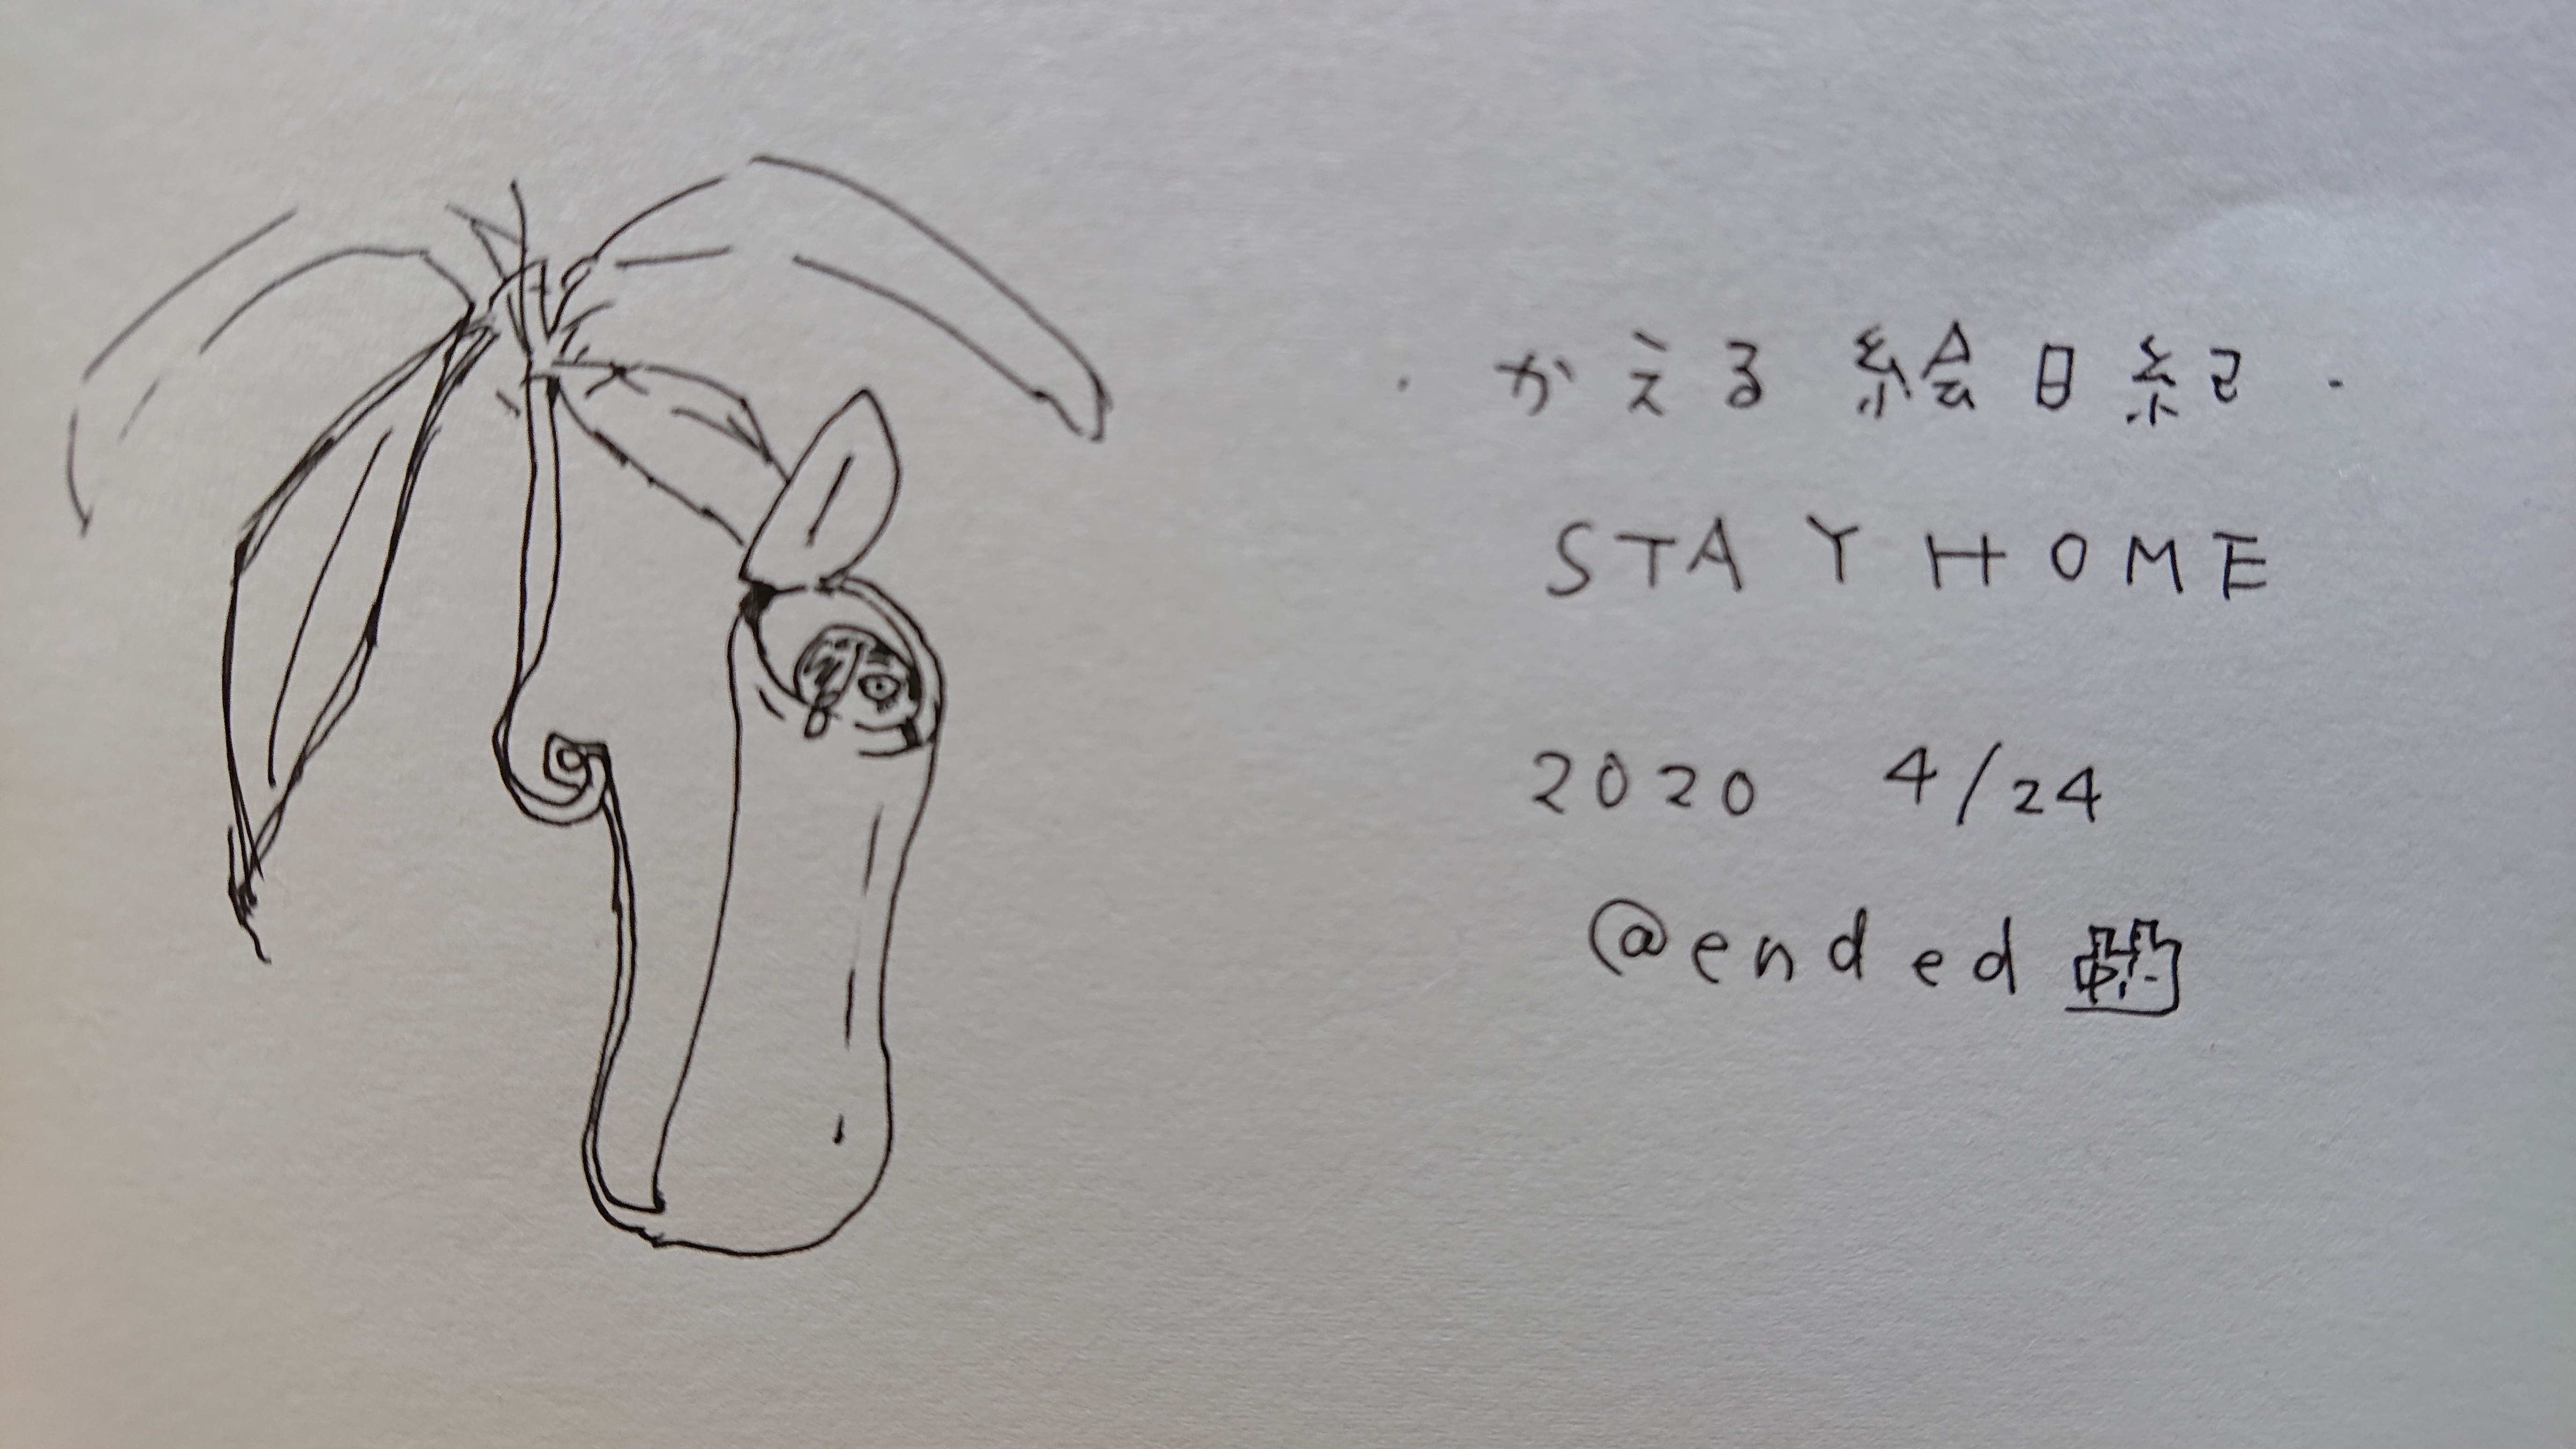 ・かえる絵日紀・
STAY HOME
2020 4/24
@ended